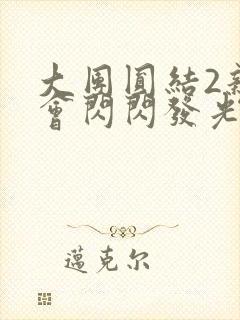 大團圓結2新
會閃閃發光
邁克尔